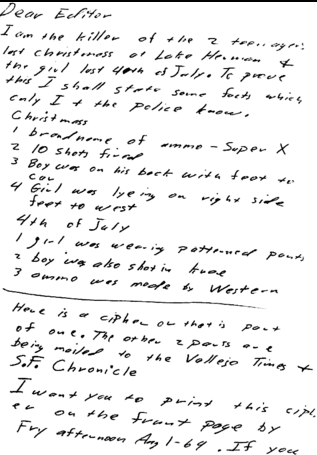 Dear Editor
I am the killer of the 2 teen agers
last christmass at Lake Herman &
the girl last 4th of July. To prove
this I shall state some facts which
only I + the police know.
Christmass
1 brand name of ammo - Super X
2 10 shots fired
3 Boy was on his back with feet to
car
4 Girl was lyeing on right side
feet to west
4th of July
1 girl was wearing patterned pants
2 boy was also shot in knee
3 ammo was made by Western
Here is a cipher or that is part
of one. The other 2 parts are
being mailed to the Vallejo Times +
S.F. Chronicle
I want you to print this ciph
er on the frunt page by
Fry afternoon Aug 1-69. If you